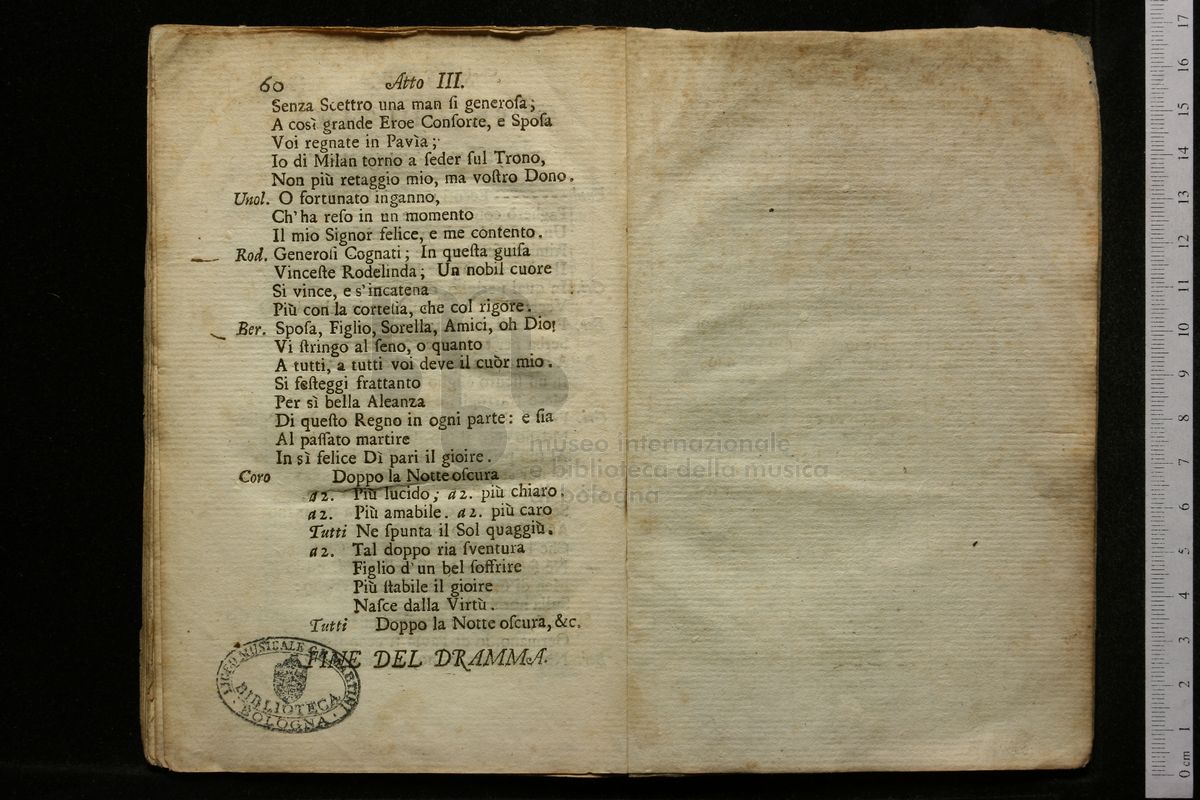 60 Atto III.
Senza Scettro una man ſi generoſa;
A così grande Eroe Conſorte, e Spoſa
Voi regnate in Pavìa;
Io di Milan torno a ſeder ſul Trono,
Non più retaggio mio, ma voſtro Dono.
Unol. O fortunato inganno,
Ch'ha reſo in un momento
Il mio Signor felice, e me contento.
Rod. Generoſi Cognati; In queſta guiſa
Vinceſte Rodelinda; Un nobil cuore
Si vince, e s'incatena
Più con la corteſia, che col rigore.
Ber. Spoſa, Figlio, Sorella, Amici, oh Dio!
Vi ſtringo al ſeno, o quanto
A tutti, a tutti voi deve il cuòr mio.
Si feſteggi frattanto
Per sì bella Aleanza
Di queſto Regno in ogni parte: e ſia
Al paſſato martire
In sì felice Dì pari il gioire.
Coro Doppo la Notte oſcura
a 2. Più lucido; a 2. più chiaro.
a 2. Più amabile. a 2. più caro
Tutti Ne ſpunta il Sol quaggiù.
a 2. Tal doppo ria ſventura
Figlio d'un bel ſoffrire
Più ſtabile il gioire
Naſce dalla Virtù.
Tutti Doppo la Notte oſcura, &c.
FINE DEL DRAMMA.
LICEO MUSICALE G.B. MARTINI
BIBLIOTECA
BOLOGNA
museo internazionale
e biblioteca della musica
di bologna
0 cm 1 2 3 4 5 6 7 8 9 10 11 12 13 14 15 16 17